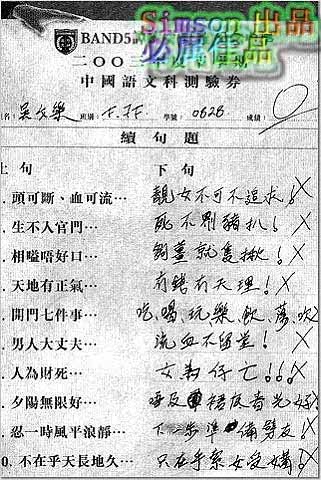 Simson 出品
必屬佳品
BAND5
二〇〇三年
中國語文科測驗券
名: 班別: 學號: 0626 成績: 0
續句題
上句 下句
. 頭可斷、血可流… 靚女不可不追求!X
. 生不入官門… 死不 豬扒!X
. 相嗌唔好口… 就隻揪!X
. 天地有正氣… 有錢有天理!X
. 開門七件事… 吃、喝、玩、樂、飲、蕩、吹X
. 男人大丈夫… 流血不留 !X
. 人為財死… 女為仔亡!!!X
. 夕陽無限好… 唔及裙底春光好!X
. 忍一時風平浪靜… 下一步準備劈友!X
0. 不在乎天長地久… 只在乎索女受媾!X